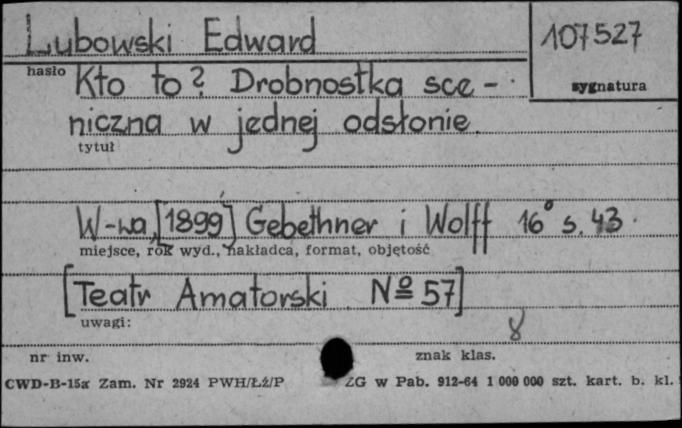 Lubowski Edward
107527
hasło
sygnatura
Kto to? Drobnostka sce-
niczna w jednej odsłonie.
tytuł
W-wa, [1899] Gebethner i Wolff 16° s. 43.
miejsce, rok wyd., nakładca, format, objętość
[Teatr Amatorski Nº 57]
uwagi:
8
nr inw.
znak klas.
CWD-B-15a Zam. Nr 2924 PWH/Łź/P ZG w Pab. 912-64 1 000 000 szt. kart. b. kl.